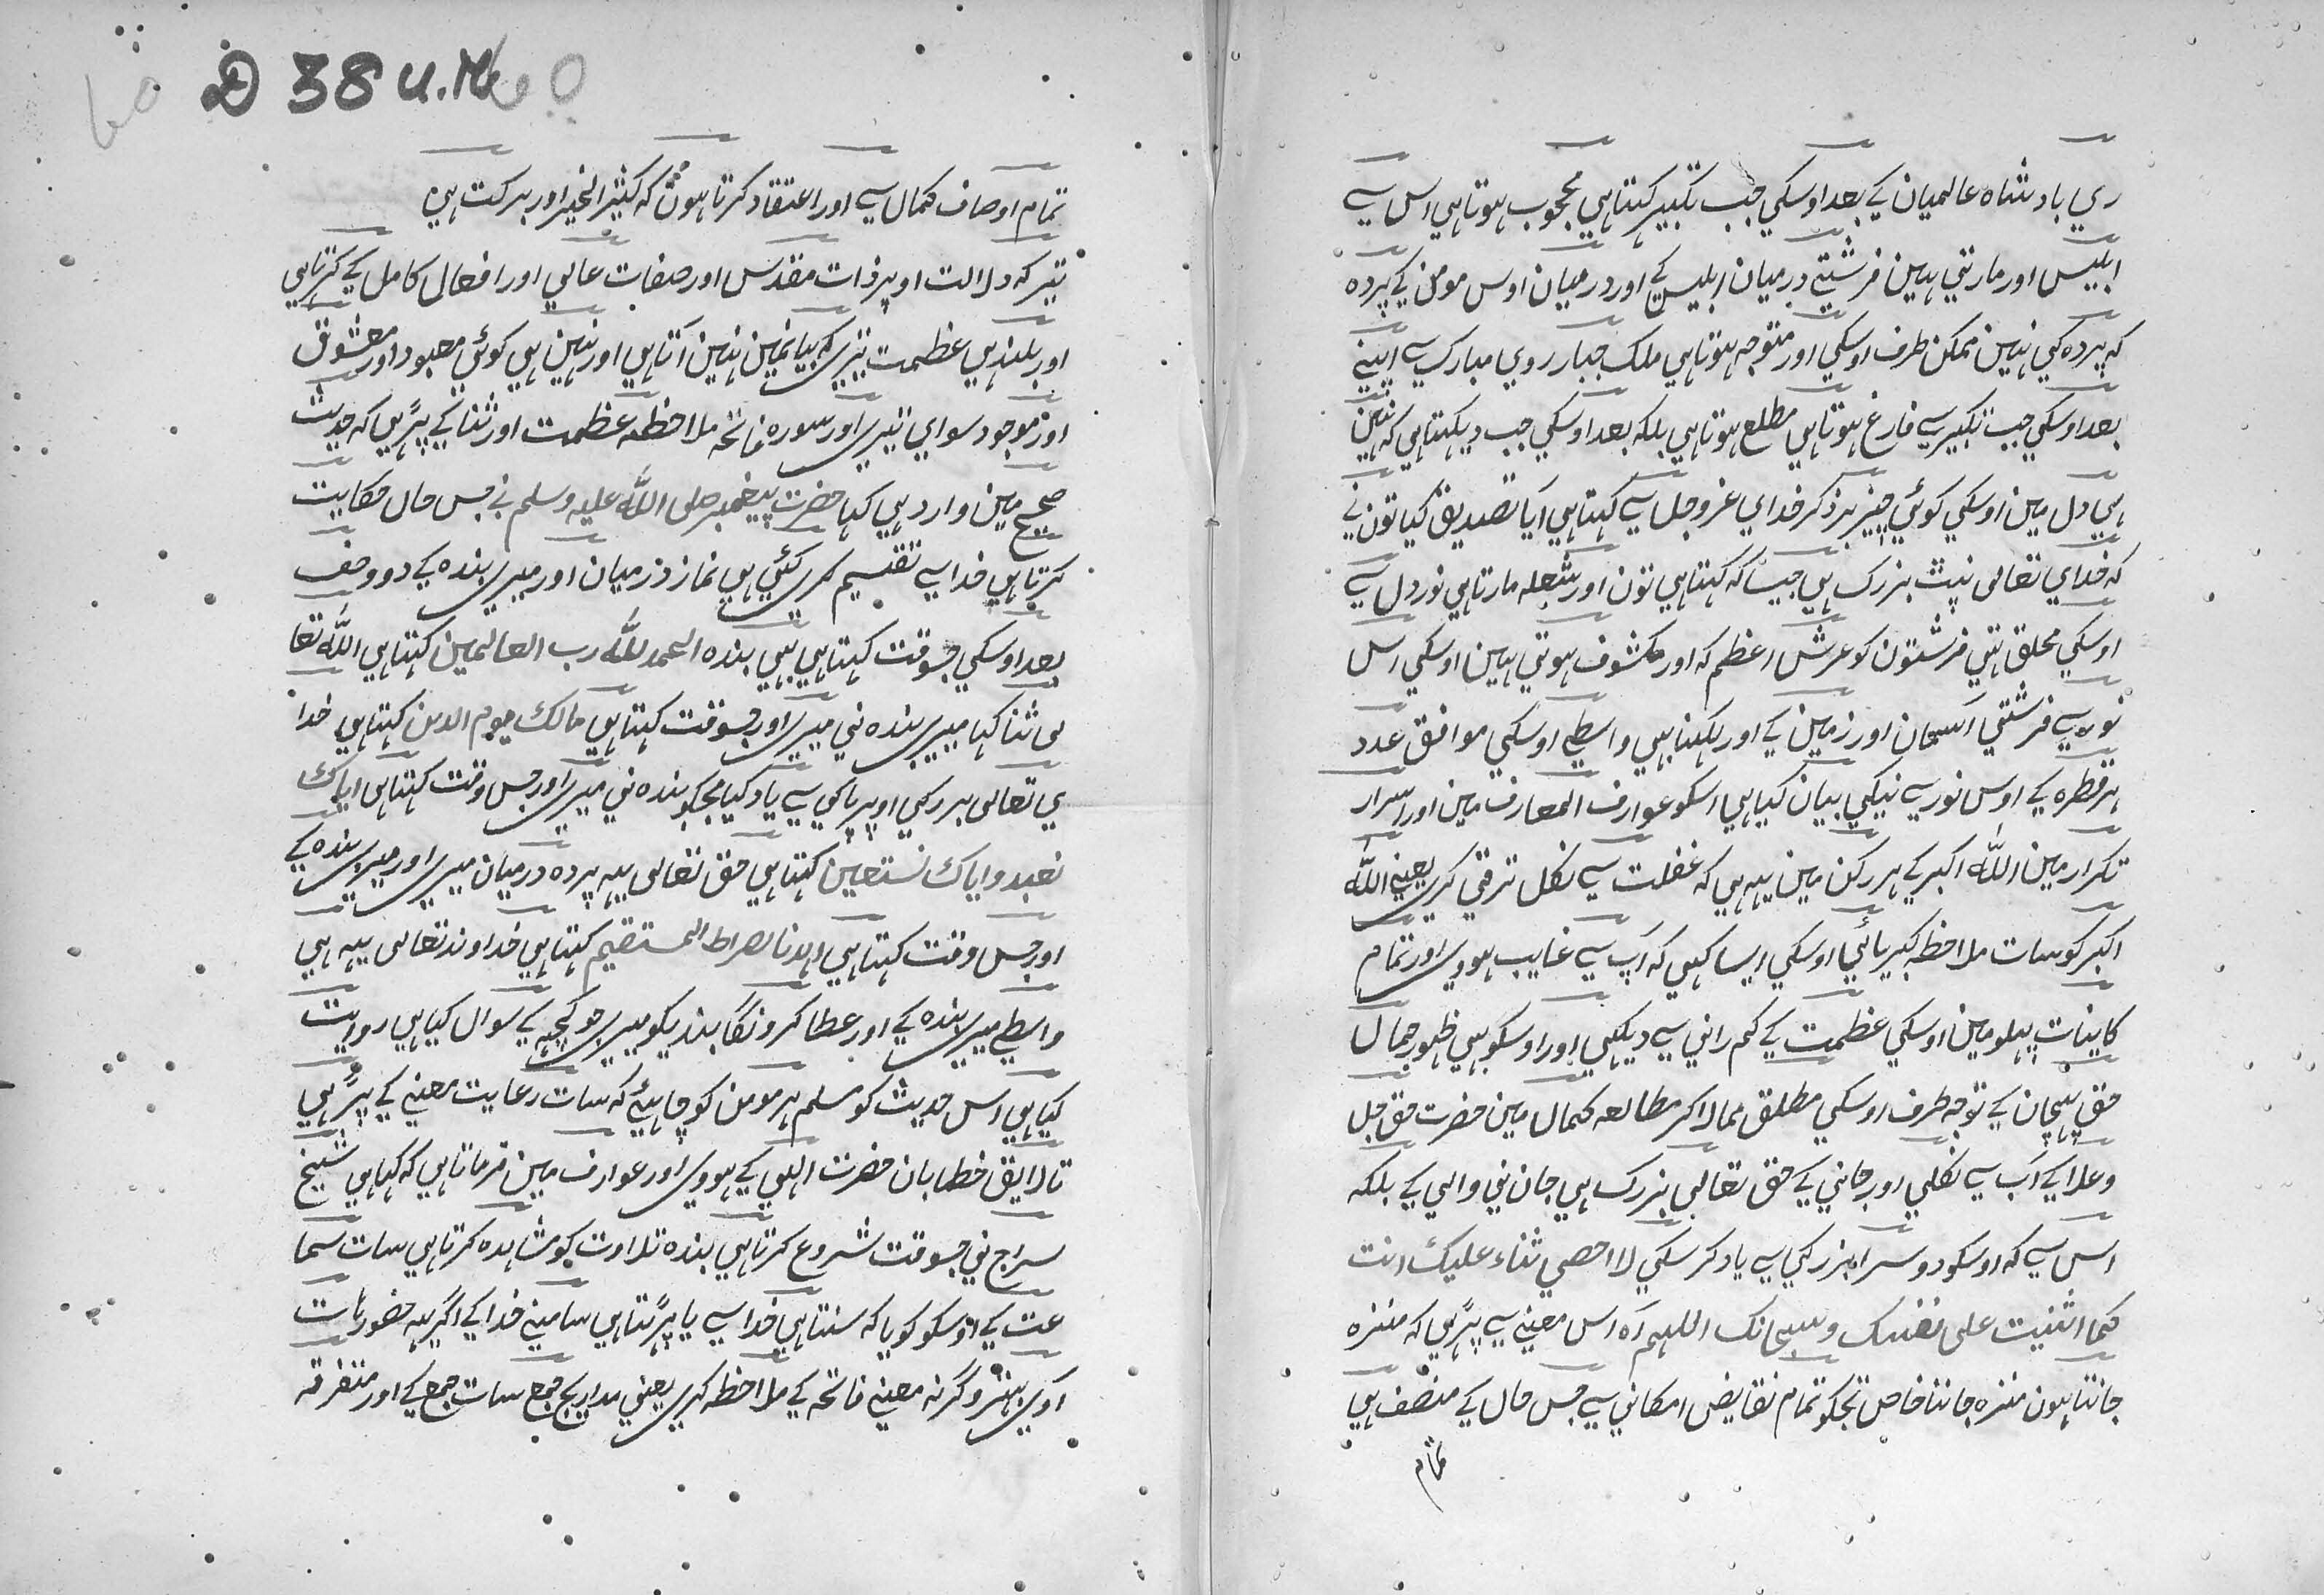 ري بادشاه عالميان کے بعد اوسکي جب تکبير کہتا ہي محجوب ہوتا ہي اس سے
ابليس اور مارتي ہين فرشتے درميان ابليس کے اور درميان اوس مومن کے پرده
کہ پرده کي نہين ممکن طرف اوسکي اور متوجہ ہوتا ہي ملک جبار روي مبارک سے اپنے
بعد اوسکي جب تکبير سے فارغ ہوتا ہي مطلع ہوتا ہي بلکہ بعد اوسکي جب ديکھتا ہي کہ نہين
ہي دل مين اوسکي کوئي چيز بزذکر خداي عزوجل سے کہتا ہي آيا تصديق کيا تون نے
کہ خداي تعالی نپٹ بزرک ہي جيسا کہ کہتا ہي تون اور شعله مارتا ہي نور دل سے
اوسکي محلق تني فرشتون کو عرش اعظم کہ اور مکشوف ہوتي ہين اوسکي اس
نور سے فرشتي آسمان اور زمين کے اور لکہنا ہي واسطے اوسکي موافق عدد
ہر قطره کے اوس نور سے نيکي بيان کيا ہي اسکو عوارف المعارف مين اور اسرار
تکرار مين الله اکبر کے ہر رکن مين يہہ ہي کہ غفلت سے نکل ترقي کرے يعنے الله
اکبر کو سات ملاحظہ کبريائي اوسکي ايسا کہي کہ آپ سے غايب ہووے اور تمام
کاينات پہلو مين اوسکي عظمت کے کم راني سے ديکہي اور اوسکو ہي ظہور جمال
حق پہچان کے توجہ طرف اوسکي مطلق بمالاکر مطالعہ کمال مين حضرت حق جل
وعلا کے آپ سے نکلي اور جاني کے حق تعالی بزرک ہي جان ني والی کے بلکہ
اس سے کہ اوسکو دوسرا بزرکي سے ياد کر سکي لا احصي ثناء عليک انت
کما اثنيت علی نفسک و سبحانک اللہم آه اس معنے سے پڑہي کہ منزه
جانتا ہون منزه جاننا خاص تجکو تمام نقايض امکاني سے جس حال کے متصف ہي
تمام
D 38 U.M
تمام اوصاف کمال سے اور اعتقاد کرتا ہون کہ کثير الخير اور برکت ہي
تيرکہ دلالت اوپر ذات مقدس اور صفات عالي اور افعال کامل کے کرتا ہي
اور بلند ہي عظمت تيري کہ بيانمين نہين آتا ہي اور نہين ہي کوئي معبود اور معشوق
اور موجود سواي تيرے اور سوره فاتحہ ملاحظہ عظمت اور ثنا کے پڑہي کہ حديث
صحيح مين وارد ہي کہا حضرت پيغمبر صلی الله عليہ وسلم نے جس حال حکايت
کرتا ہي خدا سے تقسيم کري گئي ہي نماز درميان اور ميرے بنده کے دو وصف
بعد اوسکي جسوقت کہتا ہي ہي بنده الحمد لله رب العالمين کہتا ہي الله تعا
لی ثنا کہا ميرے بنده ني ميرے اور جسوقت کہتا ہي مالک يوم الدين کہتا ہي خدا
ي تعالی بزرکي اوپر پاکي سے ياد کيا مجکو بنده ني ميرے اور جس وقت کہتا ہی اياک
نعبد و اياک نستعين کہتا ہي حق تعالی يہہ پرده درميان ميرے اور ميرے بنده کے
اور جس وقت کہتا ہي اہدنا الصراط المستقيم کہتا ہي خداوند تعالی يہہ ہي
واسطے ميرے بنده کے اور عطا کرونگا بنديکو ميرے جو کچہہ کے سوال کيا ہي روايت
کيا ہي اس حديث کو مسلم ہر مومن کو چاہئے کہ سات رعايت معنے کے پڑہي
تا لايق خطابان حضرت الہي کے ہووے اور عوارف مين فرماتا ہي کہ کہا ہي شيخ
سراج ني جسوقت شروع کرتا ہي بنده تلاوت کو مشاہده کرتا ہي سات سما
عت کے اوسکو کويا کہ سنتا ہي خدا سے يا پڑہتا ہي سامنے خدا کے اگر يہہ حضور ہات
آوے بہتر وگرنہ معنے فاتحہ کے ملاحظہ کرے يعني مداريج جمع سات جمع کے اور متفرقہ